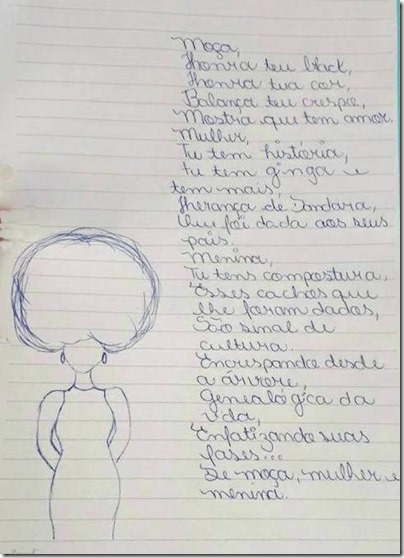 Moça,
Honra teu black,
Honra tua cor,
Balança teu crespo,
Mostra que tem amor.
Mulher,
Tu tem história,
tu tem ginga e
tem mais!
Herança de Dandara,
Que foi dada aos seus
pais.
Menina,
Tu tens compostura,
Esses cachos que
lhe foram dados,
São sinal de
cultura.
Encrespando desde
a árvore,
Genealógica da
vida,
Enfatizando suas
fases...
De moça, mulher e
menina.